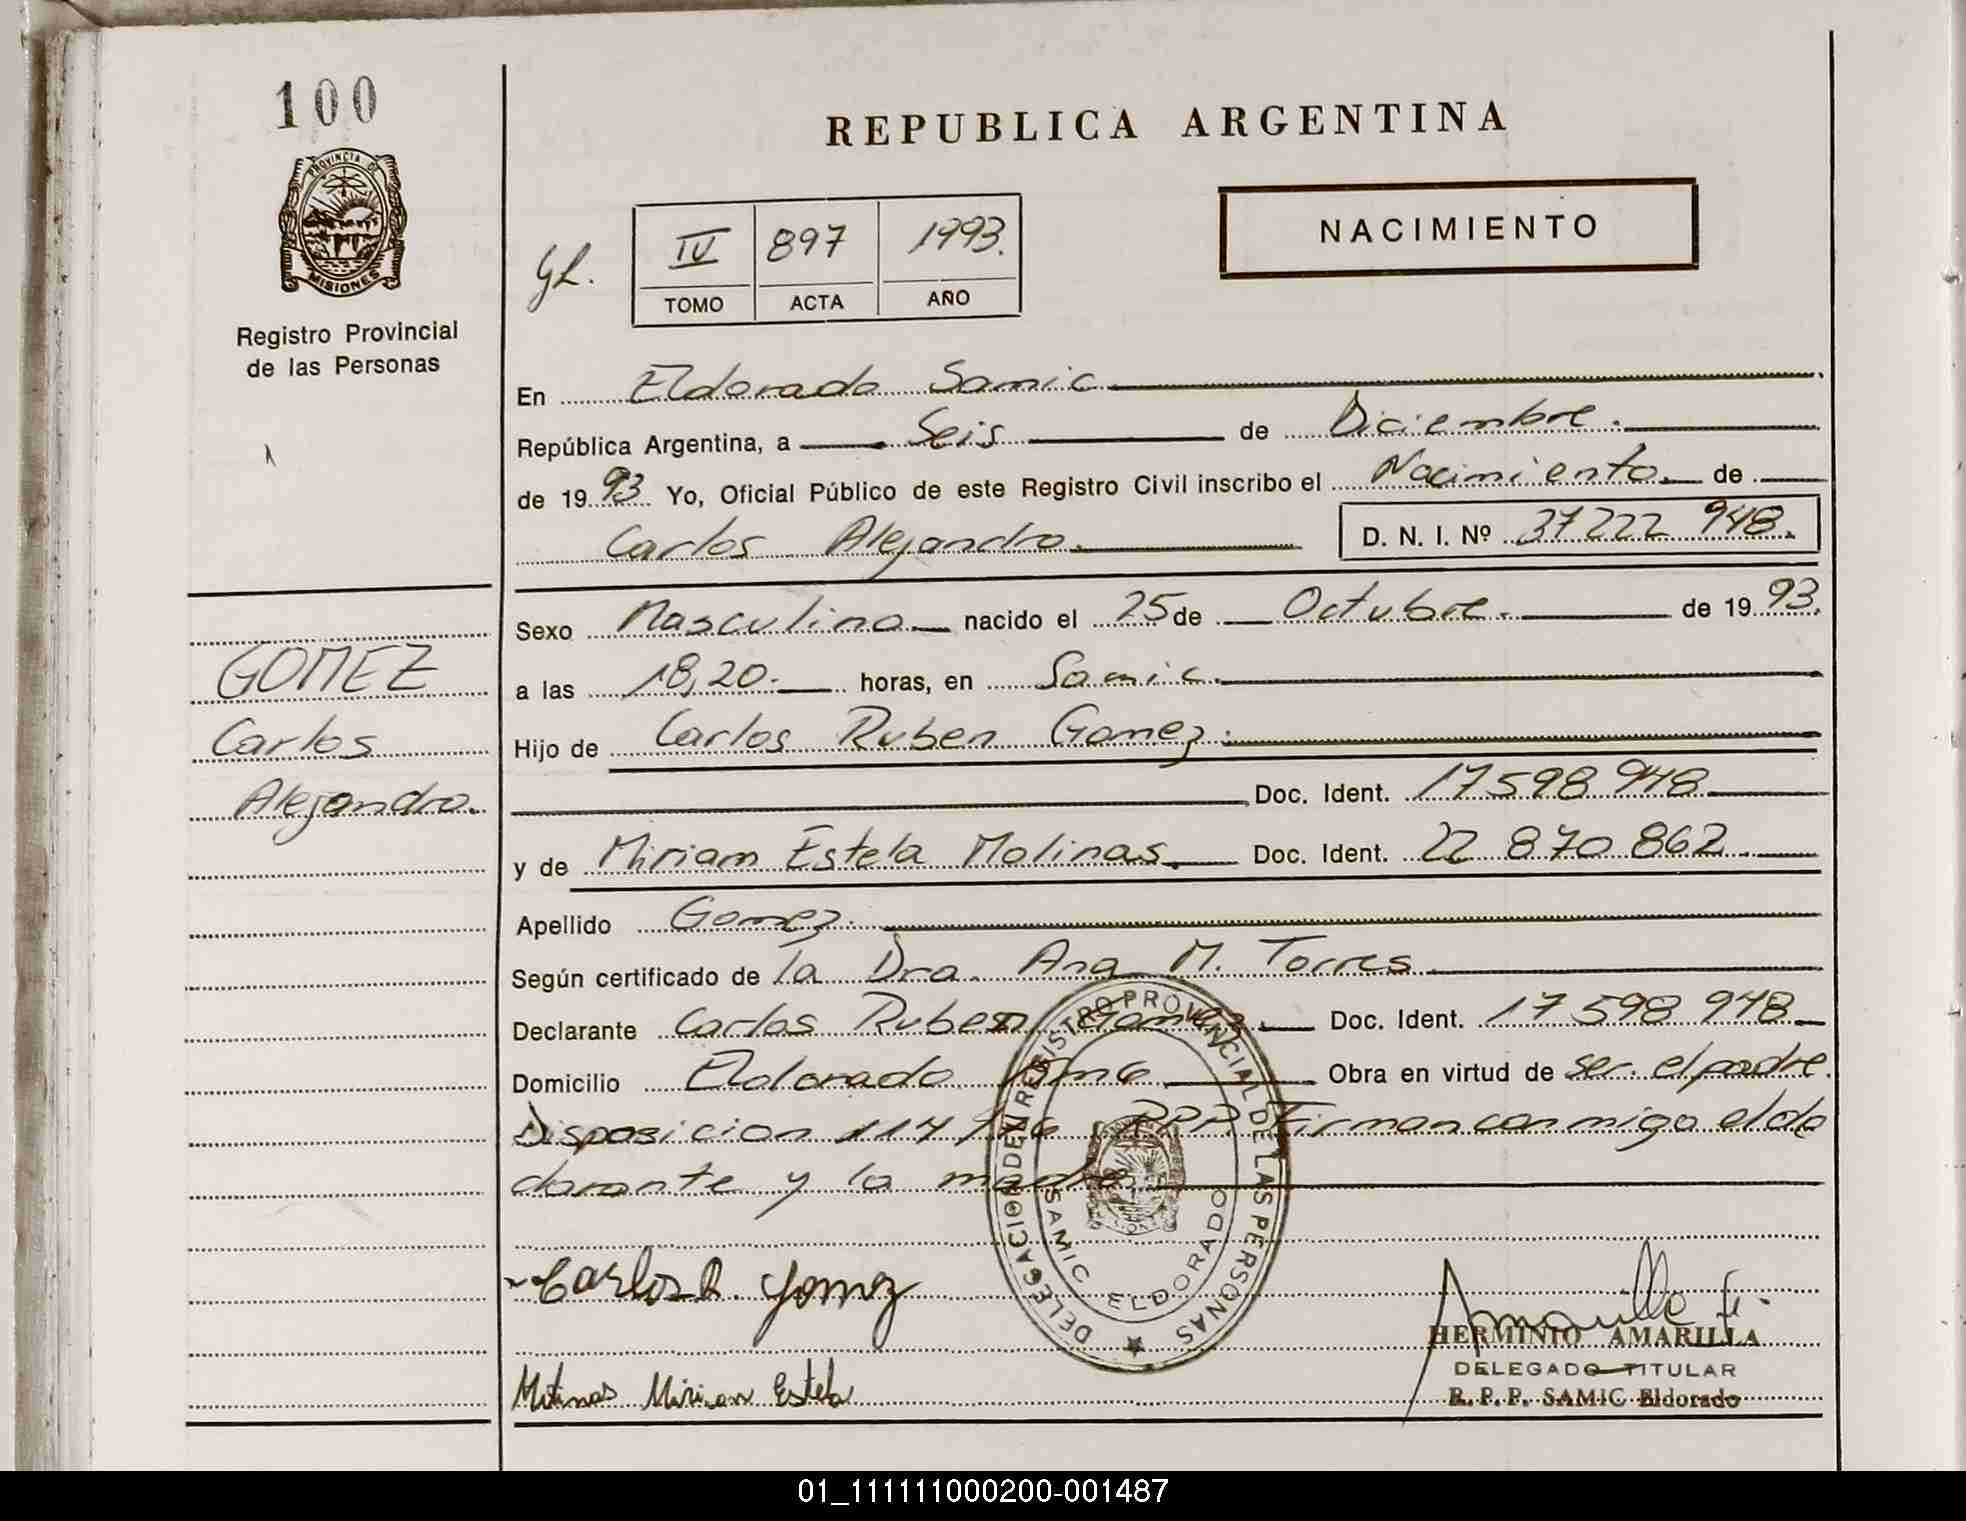 100
PROVINCIA DE
MISIONES
Registro Provincial
de las Personas
GOMEZ
Carlos
Alejandro.
REPUBLICA ARGENTINA
NACIMIENTO
IV 897 1993.
TOMO ACTA AÑO
En Eldorado Samic
República Argentina, a Seis de Diciembre.
de 1993 Yo, Oficial Público de este Registro Civil inscribo el Nacimiento de
Carlos Alejandro. D. N. I. Nº 37 222 948.
Sexo Masculino nacido el 25 de Octubre. de 1993.
a las 18,20. horas, en Samic.
Hijo de Carlos Ruben Gomez.
Doc. Ident. 17 598 948
y de Miriam Estela Molinas. Doc. Ident. 22 870 862.
Apellido Gomez.
Según certificado de la Dra. Ana M. Torres
Declarante Carlos Ruben Gomez. Doc. Ident. 17 598 948
Domicilio Eldorado Km 6 Obra en virtud de ser el padre.
Disposicion 114/ RPP. Firman conmigo el de
clarante y la madre
DELEGACION DEL REGISTRO PROVINCIAL DE LAS PERSONAS
SAMIC ELDORADO
Carlos R. Gomez
Molinas Miriam Estela
HERMINIO AMARILLA
DELEGADO TITULAR
R. P. P. SAMIC Eldorado
01_111111000200-001487